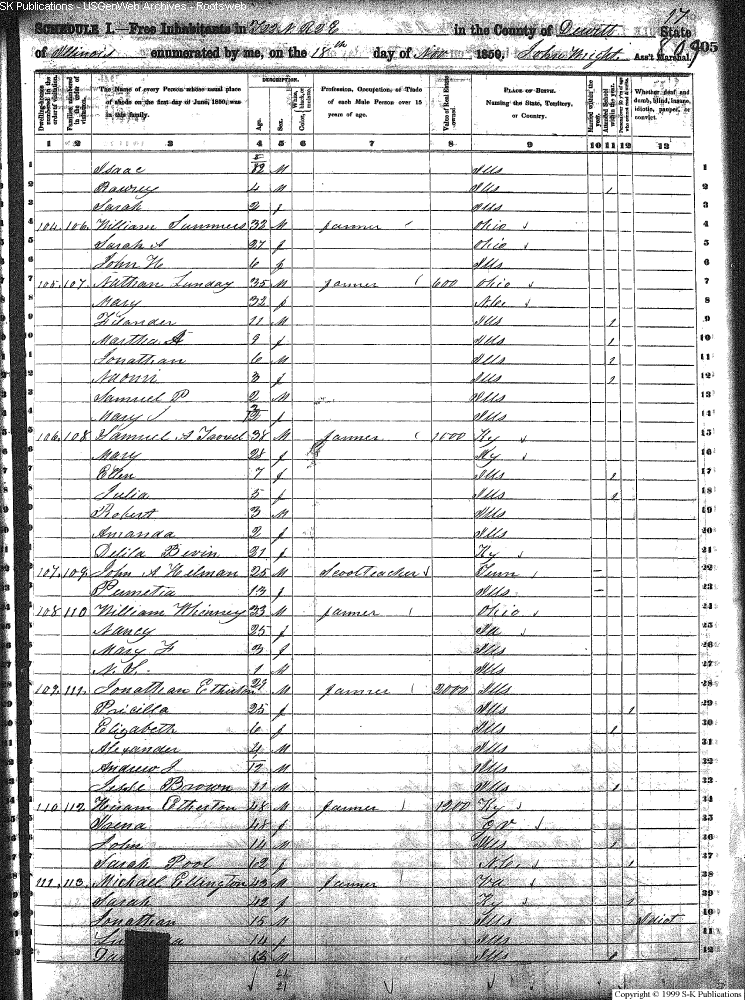 SK Publications - USGenWeb Archives - Rootsweb
17
SCHEDULE I.—Free Inhabitants in in the County of Dewitt State
of Illinois enumerated by me, on the 18th day of Nov 1850. John Wright Ass't Marshal. 805
Dwelling-houses numbered in the order of visitation.
Families numbered in the order of visitation.
The Name of every Person whose usual place of abode on the first day of June, 1850, was in this family.
DESCRIPTION.
Age.
Sex.
Color, White, black, or mulatto.
Profession, Occupation, or Trade of each Male Person over 15 years of age.
Value of Real Estate owned.
PLACE OF BIRTH. Naming the State, Territory, or Country.
Married within the year.
Attended School within the year.
Persons over 20 y'rs of age who cannot read & write.
Whether deaf and dumb, blind, insane, idiotic, pauper, or convict.
1 2 3 4 5 6 7 8 9 10 11 12 13
1 Isaac M Ills 1
2 4 M Ills 2
3 Sarah 2 f Ills 3
4 104 106 William Summers 32 M farmer Ohio 4
5 Sarah A 27 f Ohio 5
6 John H 6 Ills 6
7 105 107 Nathan Lunday 35 M farmer 600 Ohio 7
8 Mary 32 f 8
9 11 M Ills 9
10 Martha 9 f Ills 10
11 Jonathan 6 M Ills 11
12 Naomi 3 f Ills 12
13 Samuel P 2 M Ills 13
14 Mary f Ills 14
15 106 108 Samuel A 38 M farmer 1000 Ky 15
16 Mary 28 f Ky 16
17 Ellen 7 f Ills 17
18 Julia 5 f Ills 18
19 Robert 3 M Ills 19
20 Amanda 2 f Ills 20
21 Delila Bevin 21 f Ky 21
22 107 109 John A Helman 25 M Scoolteacher Tenn 22
23 13 f Ills 23
24 108 110 William Whinney 33 M farmer Ohio 24
25 Nancy 25 f 25
26 Mary F 3 f Ills 26
27 1 M Ills 27
28 109 111 Jonathan Etherton 29 M farmer 2000 Ills 28
29 Pricilla 25 f Ills 29
30 Elizabeth 6 f Ills 30
31 Alexander 4 M Ills 31
32 Andrew J M Ills 32
33 Jesse Brown 11 M Ills 33
34 110 112 Hiram Etherton 48 M farmer 1200 Ky 34
35 48 f 35
36 John 14 M Ills 36
37 Sarah Pool 62 f 37
38 111 113 Michael Ellington 43 M farmer Va 38
39 Sarah 42 f Ky 39
40 Jonathan 15 M Ills Idiot 40
41 14 f Ills 41
42 12 M Ills 42
21
21
Copyright © 1999 S-K Publications